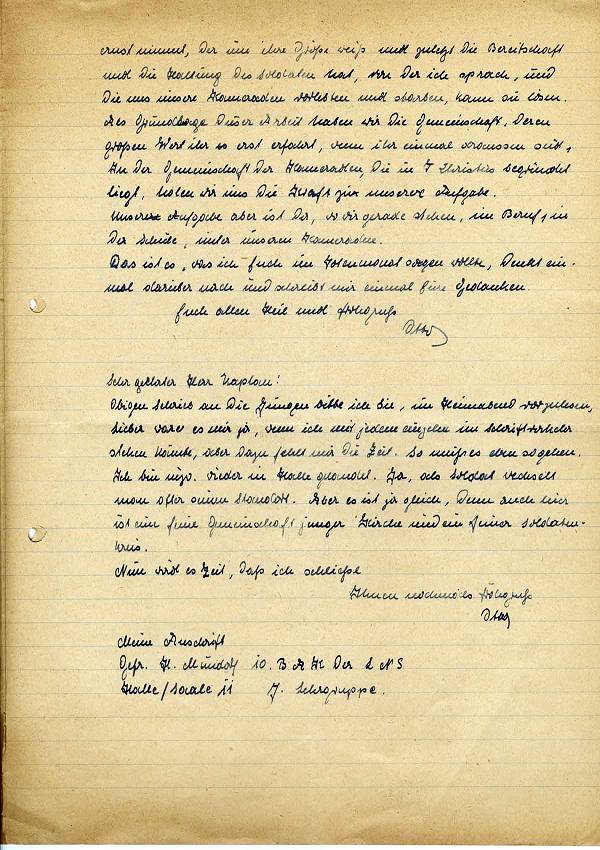 ernst nimmt, der um ihre Größe weiß und zuletzt die Bereitschaft
und die Haltung des Soldaten hat, von der ich sprach, und
die uns unsere Kameraden vorlebten und starben, kann sie lösen.
Als Grundlage dieser Arbeit haben wir die Gemeinschaft. Deren
großen Wert ihr so erst erfahrt, wenn ihr einmal draussen seid,
In der Gemeinschaft der Kameraden, die in Christus begründet
liegt, holen wir uns die Kraft zur unserer Aufgabe.
Unsere Aufgabe aber ist da, wo wir gerade stehen, im Beruf, in
der Schule, unter unseren Kameraden.
Das ist es, was ich Euch im Totenmonat sagen wollte, Denkt ein-
mal darüber nach und schreibt mir einmal Eure Gedanken.
Euch allen Heil und Frohgruß
Otto
Sehr geehrter Herr Kaplan!
Obigen Schrieb an die Jungen bitte ich Sie, im Heimabend vorzulesen,
Lieber wäre es mir ja, wenn ich mit jedem einzelen im Schriftverkehr
stehen könnte, aber dazu fehlt mir die Zeit. So muß es eben so gehen.
Ich bin inzw. wieder in Halle gelandet. Ja, als Soldat wechselt
man öfter seinen Standort. Aber es ist ja gleich, denn auch hier
ist eine feine Gemeinschaft junger Kirche und ein feiner Soldaten-
kreis.
Nun wird es Zeit, daß ich schließe
Ihnen nochmals Frohgruß
Otto
Meine Anschrift
Gefr. H. Mündorf 10. B A K der L N S
Halle/Saale 11 7. Lehrgruppe.